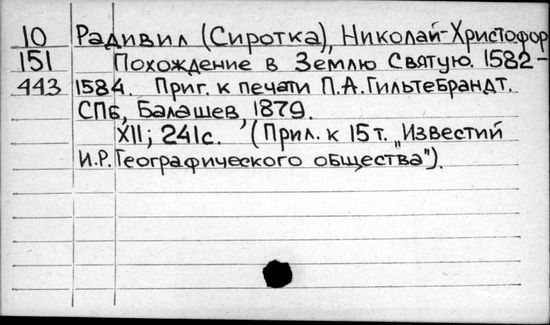 10 Радивил (Сиротка), Николай-Христофор
151 Похождение в Землю Святую. 1582-
443 1584. Приг. к печати П.А.Гильтебрандт.
СПб, Балашев, 1879.
XII; 241с. (Прил. к 15т. „Известий
И.Р.Географического общества").